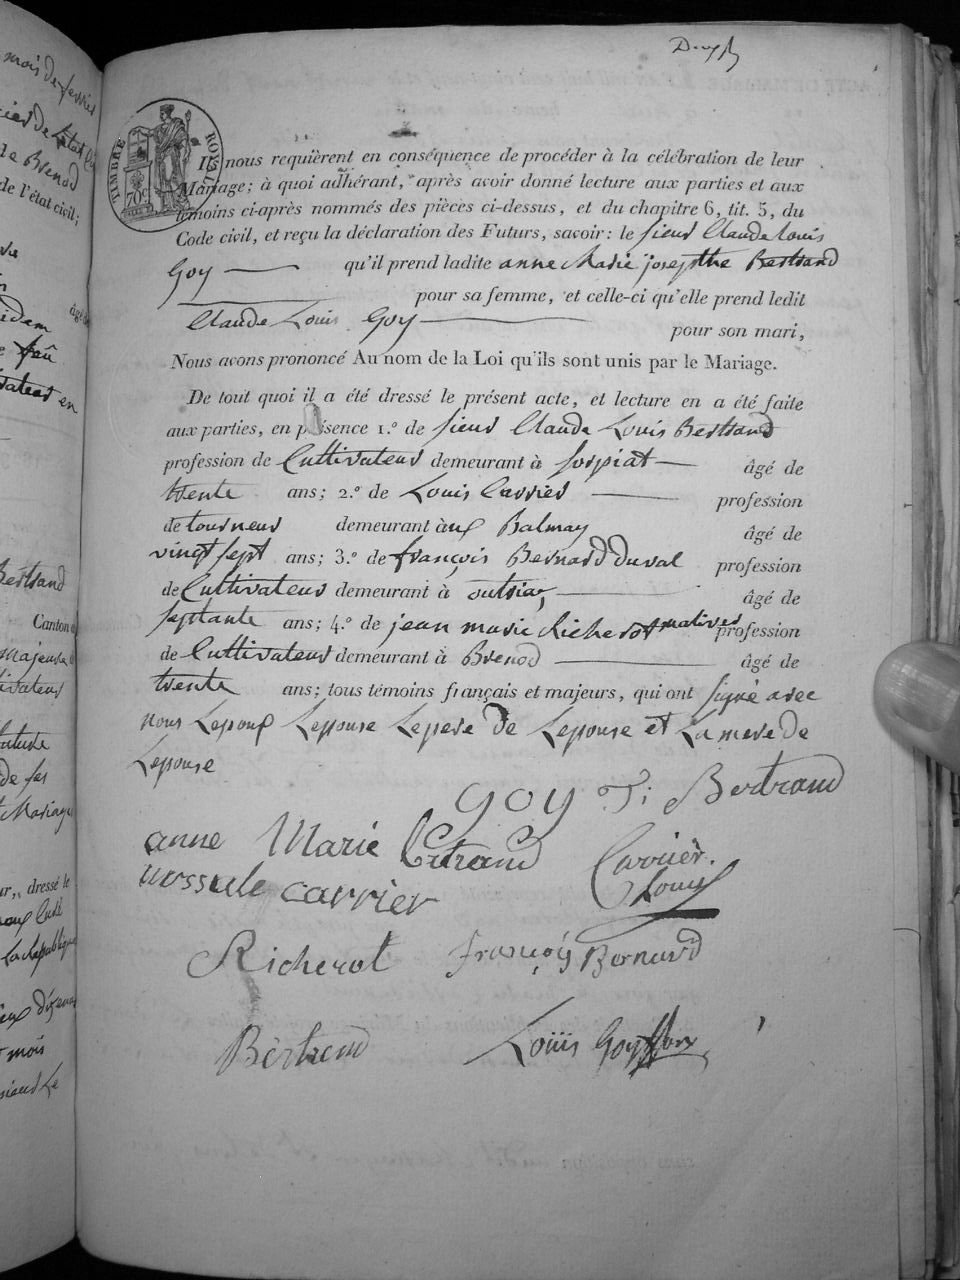 mois de fevrier
de Brenod
de l'état civil;
TIMBRE ROYAL
70c
Ils nous requièrent en conséquence de procéder à la célébration de leur
Mariage; à quoi adhérant, après avoir donné lecture aux parties et aux
témoins ci-après nommés des pièces ci-dessus, et du chapitre 6, tit. 5, du
Code civil, et reçu la déclaration des Futurs, savoir: le sieur Claude Louis
Goy — qu'il prend ladite anne Marie josepthe Bertrand
pour sa femme, et celle-ci qu'elle prend ledit
Claude Louis Goy — pour son mari,
Nous avons prononcé Au nom de la Loi qu'ils sont unis par le Mariage.
De tout quoi il a été dressé le présent acte, et lecture en a été faite
aux parties, en présence 1.º de sieur Claude Louis Bertrand
profession de Cultivateur demeurant à sospiat — âgé de
trente ans; 2.º de Louis Carrier — profession
de tourneur demeurant à aux Balmay âgé de
vingt sept ans; 3.º de françois Bernard duval profession
de Cultivateur demeurant à outriaz — âgé de
septante ans; 4.º de jean marie Richerot natives profession
de Cultivateur demeurant à Brenod — âgé de
trente ans; tous témoins français et majeurs, qui ont signé avec
nous Lepoux Lepouse Lepere de Lepouse et La mere de
Lepouse
GOY J: Bertrand
anne Marie Bertrand Carrier
Louis
urssule carrier
Richerot françois Bernard
Bertrend Louis Goyffon
Bertrand
Canton